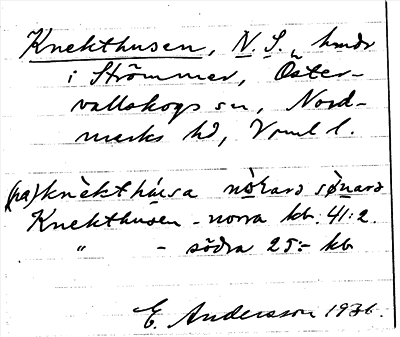 Knekthusen, N. S., hmdr
i Strömmer, Öster-
vallskogs sn, Nord-
marks hd, Vrml l.
(pa) knèkthúsa nòṙaṙə sø̀naṙə
Knekthusen - norra kb. 41:2.
" - södra 25:- kb
E. Andersson 1936.